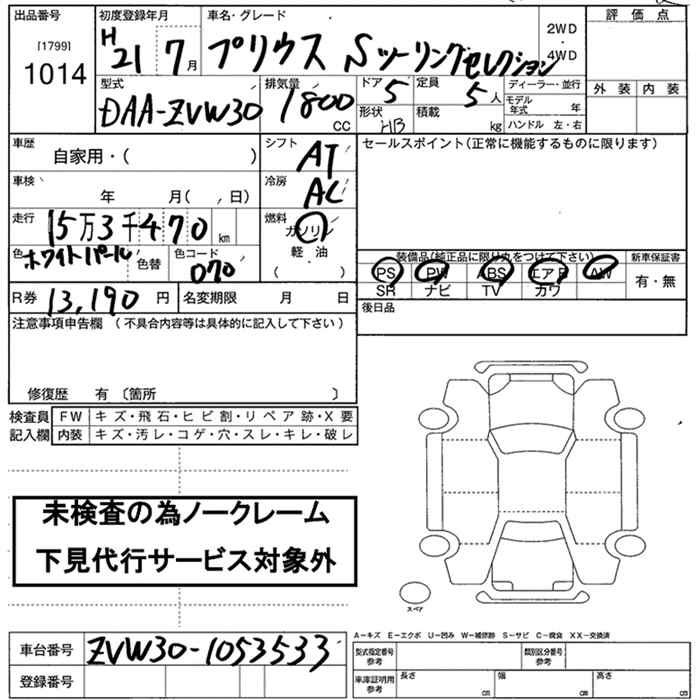 出品番号 初度登録年月 車名・グレード 評価点
[1799] 1014 H21 7月 プリウス Sツーリングセレクション 2WD・4WD
型式 排気量 ドア 定員 ディーラー・並行 外装 内装
DAA-ZVW30 1800cc 5 5人 モデル年式 年
形状 HB 積載 kg ハンドル 左・右
車歴 自家用・( ) シフト AT セールスポイント(正常に機能するものに限ります)
車検 年 月( , 日) 冷房 AC
走行 15万3千470km 燃料 ガソリン 軽油 ( )
色 ホワイトパール 色替 色コード 070
装備品(純正品に限り丸をつけて下さい) 新車保証書
PS PW ABS エアB AW 有・無
SR ナビ TV カワ
R券 13,190円 名変期限 月 日 後日品
注意事項申告欄 (不具合内容等は具体的に記入して下さい)
修復歴 有 〔箇所 〕
検査員記入欄 FW キズ・飛石・ヒビ割・リペア跡・X要
内装 キズ・汚レ・コゲ・穴・スレ・キレ・破レ
未検査の為ノークレーム
下見代行サービス対象外
スペア
A−キズ E−エクボ U−凹み W−補修跡 S−サビ C−腐食 XX−交換済
車台番号 ZVW30-1053533 型式指定番号 参考 類別区分番号 参考
登録番号 車庫証明用 参考 長さ cm 幅 cm 高さ cm